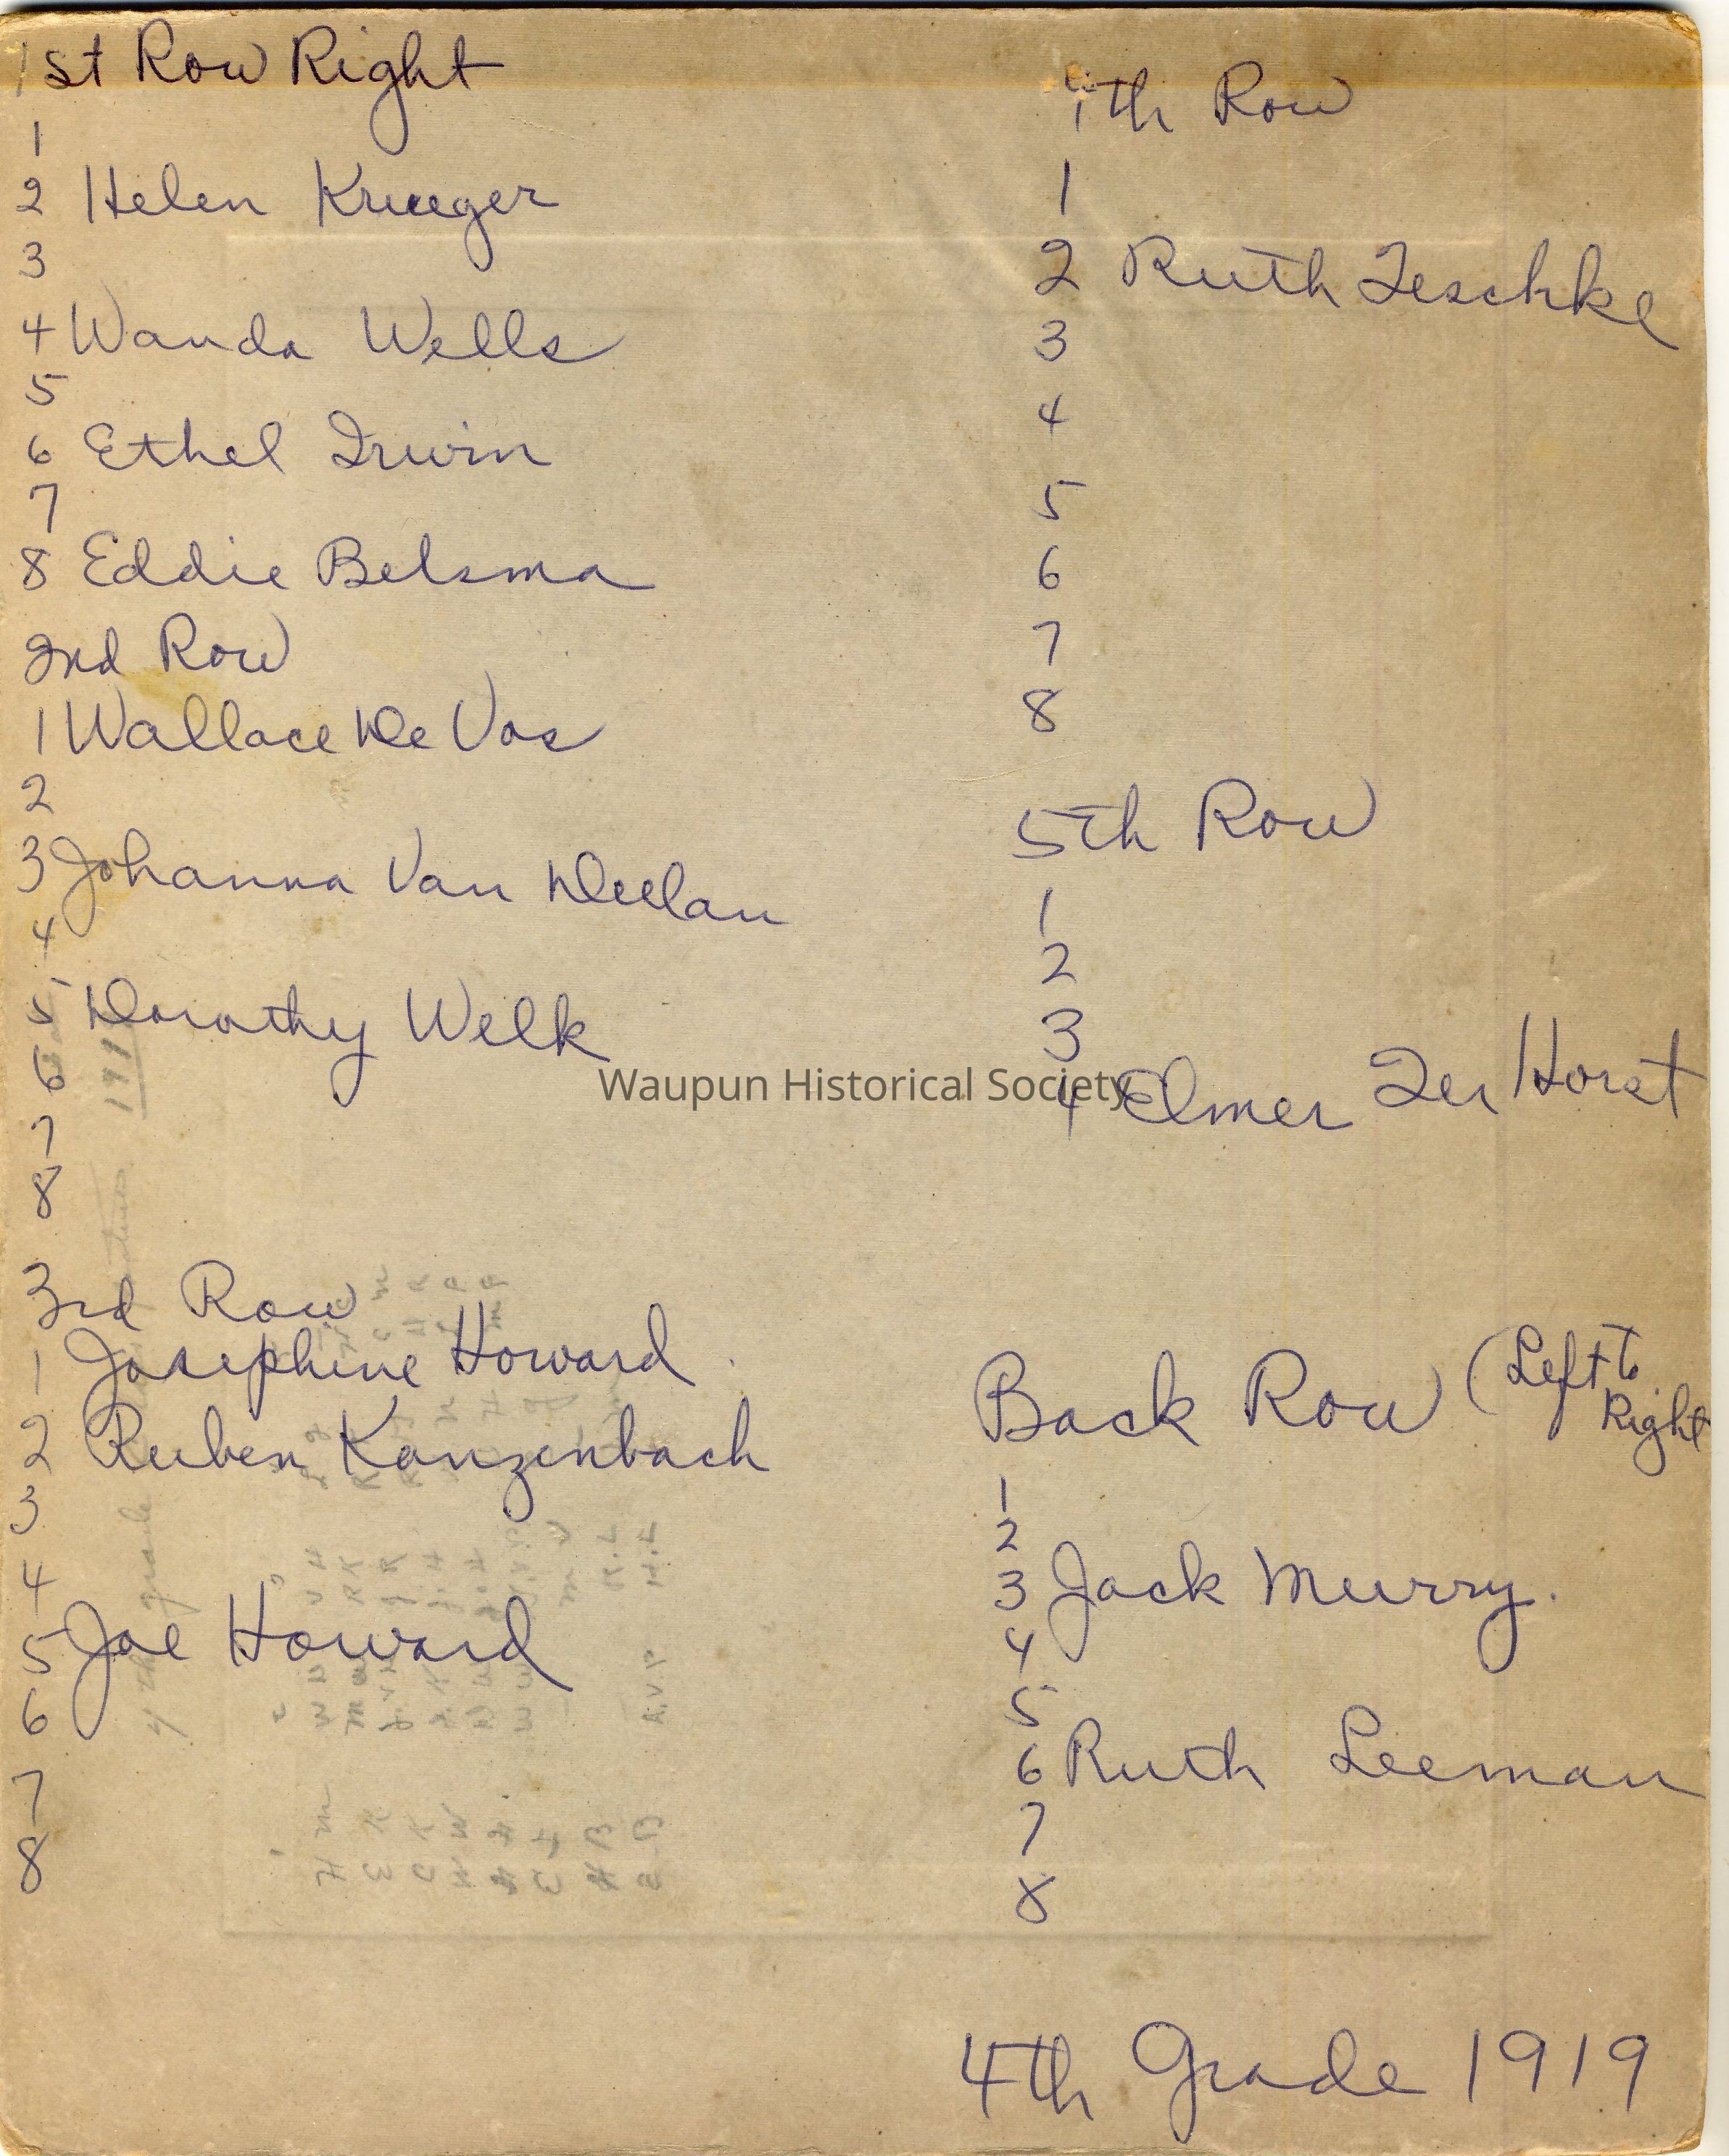 1st Row Right
1
2 Helen Krueger
3
4 Wanda Wells
5
6 Ethel Irwin
7
8 Eddie Belsma
2nd Row
1 Wallace De Vos
2
3 Johanna Van Deelan
4
5 Dorothy Welk
6
7
8
3rd Row
1 Josephine Howard.
2 Ruben Kanzenbach
3
4
5 Joe Howard
6
7
8
4th Row
1
2 Ruth Teschke
3
4
5
6
7
8
5th Row
1
2
3
4 Elmer Ter Horst
Waupun Historical Society
Back Row (Left to
Right
1
2
3 Jack Murry.
4
5
6 Ruth Leeman
7
8
4th Grade 1919